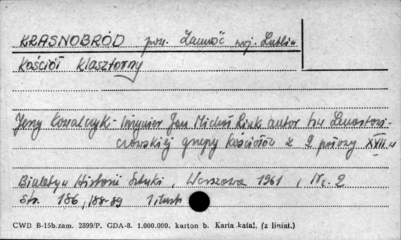 KRASNOBRÓD pow. Zamość woj. Lublin
Kościół klasztorny
Jerzy Kowalczyk - Inżynier Jan Michał Link autor tzw Lwowsko
grupy kościołów z 2 połowy XVII w
Biuletyn Historii Sztuki, Warszawa 1961, Nr. 2
str. 186, 188-89 1 ilustr
CWD B-15b.zam. 2899/P. GDA-8. 1.000.000. karton b. Karta katal. (z liniat.)